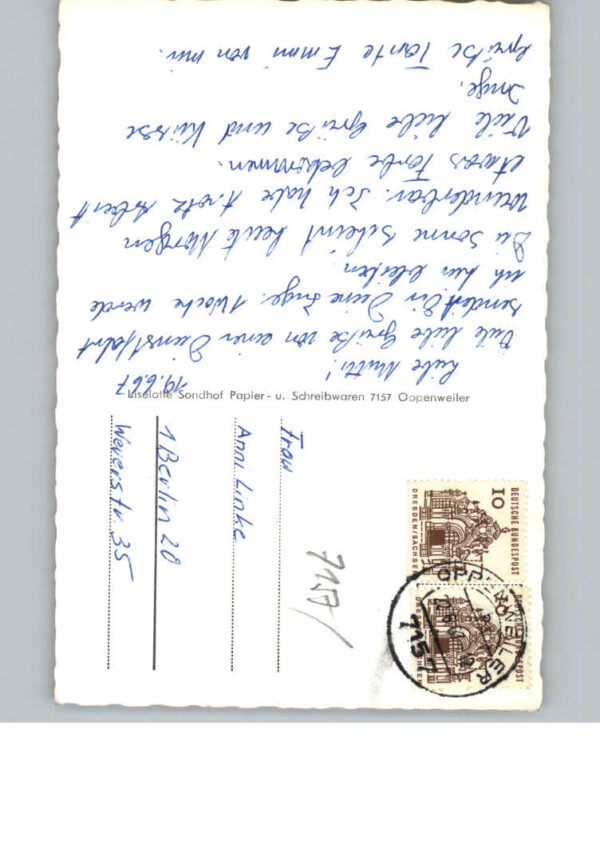 19.6.67
Liebe Mutti!
Viele liebe Grüße von einer Dienstfahrt
sendet Dir Deine Inge. 1 Woche werde
ich hier bleiben
Die Sonne scheint heute Morgen
wunderbar. Ich habe trotz Arbeit
etwas Farbe bekommen.
Viele liebe Grüße und Küsse
Inge.
Grüße Tante Emmi von mir.
Liselotte Sondhof Papier- u. Schreibwaren 7157 Oppenweiler
Frau
Anni Linke
1 Berlin 20
Weverstr. 35
7157/
10
DEUTSCHE BUNDESPOST
DRESDEN/SACHSEN
OPPENWEILER
7157